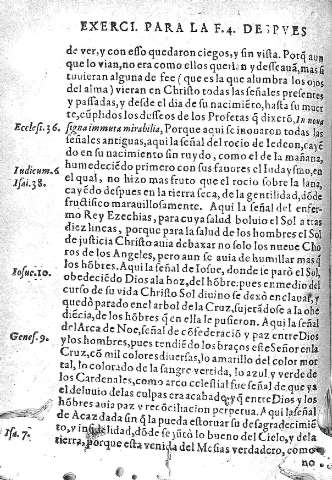 EXERCI. PARA LA F. 4. DESPVES
de ver, y con esso quedaron ciegos, y sin vista. Porq̃ aun
que lo vian, no era como ellos querian y desseauã, mas si
tuuieran alguna de fee (que es la que alumbra los ojos
del alma) vieran en Christo todas las señales presentes
y passadas, y desde el dia de su nacimiẽto, hasta su muer
te, cũplidos los desseos de los Profetas q̃ dixerõ, In noua
Ecclesi. 36. signa immuta mirabilia, Porque aqui se inouaron todas las
señales antiguas, aqui la señal del rocio de Iedeon, cayẽ
do en su nacimiento sin ruydo, como el de la mañana,
Iudicum. 6 humedeciẽdo primero con sus fauores el Iudaysmo, en
Isai. 38. el qual, no hizo mas fruto que el rocio sobre la lana,
cayẽdo despues en la tierra seca, de la gentilidad, dõde
fructifico marauillosamente. Aqui la señal del enfer-
mo Rey Ezechias, para cuya salud boluio el Sol a tras
diez lineas, porque para la salud de los hombres el Sol
de justicia Christo auia de baxar no solo los nueue Cho
ros de los Angeles, pero aun se auia de humillar mas q̃
Iosue. 10. los hõbres. Aqui la señal de Iosue, donde te parò el Sol,
obedeciẽdo Dios a la boz, del hõbre: pues en medio del
curso de su vida Christo Sol diuino se dexò enclauar, y
quedò parado en el arbol de la Cruz, sujetãdose a la obe
diẽcia, de los hõbres q̃ en ella le pusieron. Aqui la señal
Genes. 9. del Arca de Noe, señal de cõfederació y paz entre Dios
y los hombres, pues tendiẽdo los braços este Señor en la
Cruz, cõ mil colores diuersas, lo amarillo del color mor
tal, lo colorado de la sangre vertida, lo azul y verde de
los Cardenales, como arco celestial fue señal de que ya
el deluuio de las culpas era acabado, y q̃ entre Dios y los
hõbres auia paz y recõciliacion perpetua. Aqui la señal
Isa. 7. de Acaz dada sin q̃ la pueda estoruar su desagradecimiẽ
to, y infidelidad, dõde se jũtò lo bueno del Cielo, y de la
tierra, porque esta venida del Mesias verdadero, como
no